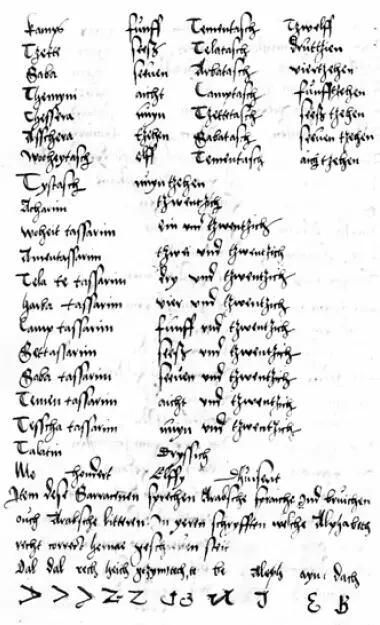 kamps funff Tementasch Tzwelff
Tzette seesz Telatasch druttzien
Saba seuen Arbatasch viertzehen
Themym aicht Camptasch funfftzehen
Thessera nuyn Tzettetasch seesz tzehen
Asschera tzehen Sabatasch seeuen tzehen
Woheytasch elff Tementasch aicht tzehen
Tystasch nuyn tzehen
Acharim tzwentzich
Woheit tassarim ein vnd tzwentzich
Amentassarim tzwei vnd tzwentzich
Tela te tassarim dry vnd tzwentzich
harba tassarim vier vnd tzwentzich
Camp tassarim funff vnd tzwentzich
Settassarim seesz vnd tzwentzich
Saba tassarim seeuen vnd tzwentzich
Temen tassarim aicht vnd tzwentzich
Tesscha tassarim nuyn vnd tzwentzich
Talatin dryssich
Me hondert Elff dhusent
Item dese Sarracenen sprechen Arabsche spraiche Ind bruichen
ouch Arabsche litteren In yeren schryfften welche Alphabeth
recht vort hernae geschreuen steit
Dal dal rech heich te be Aleph ayn dach